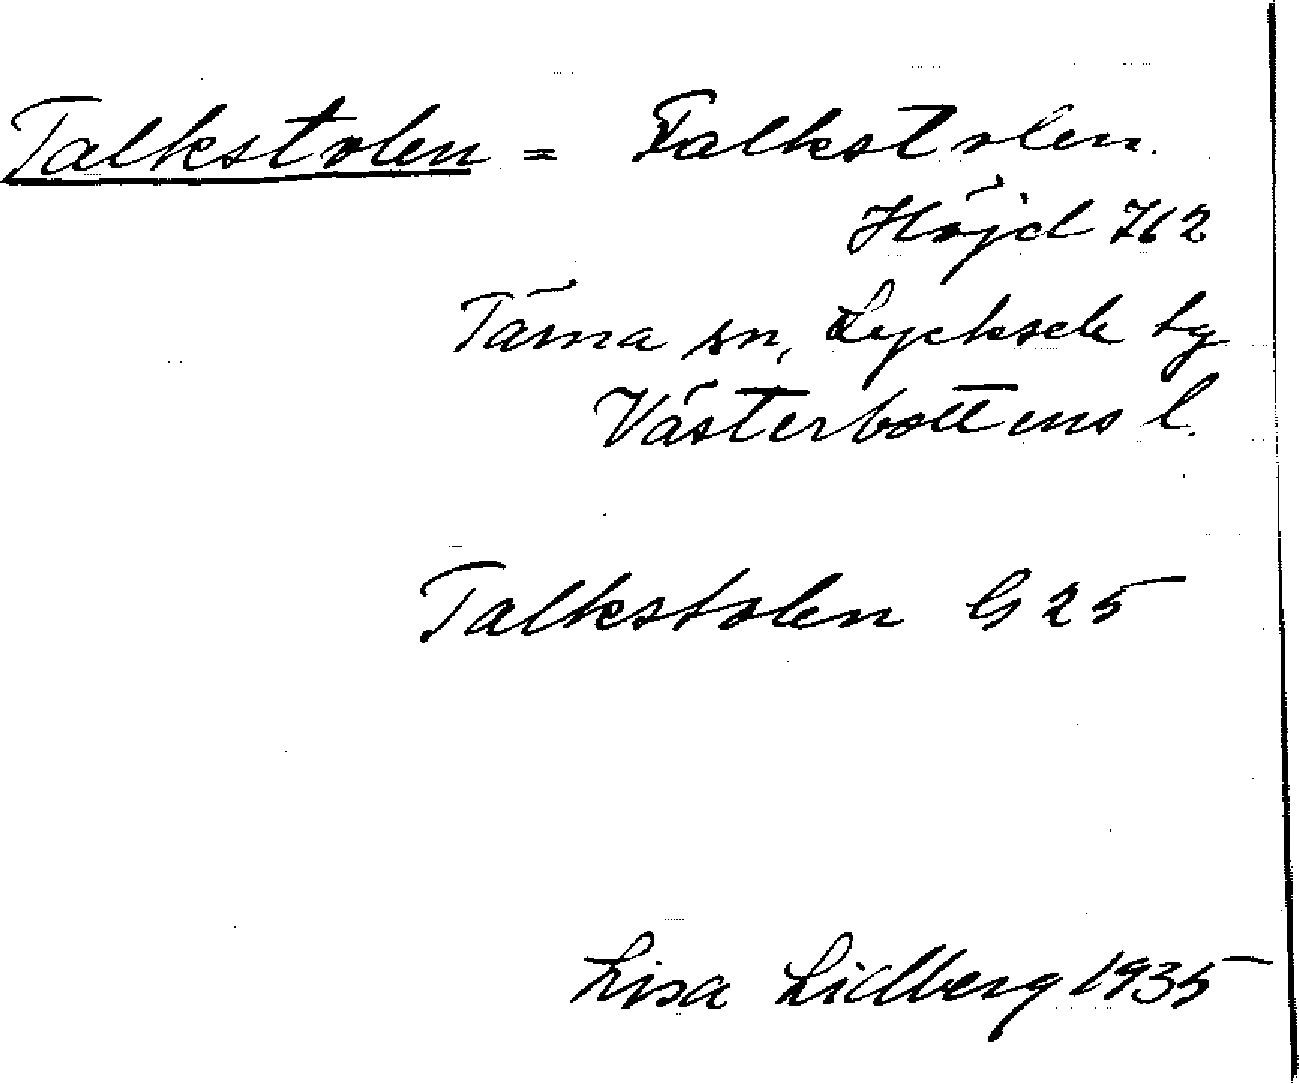 Talkstolen = Falkstolen.
Höjd 762
Tärna sn, Lycksele lg
Västerbottens l.
Talkstolen G 25
Lisa Lidberg 1935